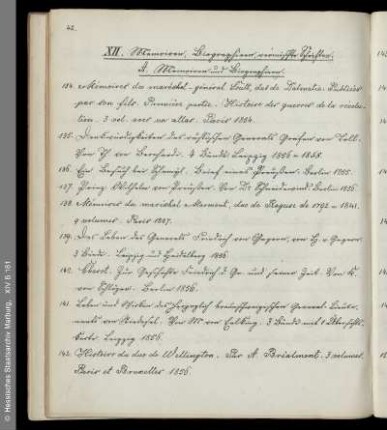 42.
XII. Memoiren, Biographieen, vermischte Schriften.
A. Memoiren und Biographieen.
134. Mémoires du maréchal-général Soult, duc de Dalmatie. Publiées
par son fils. Première partie. Histoire des guerres de la révolu-
tion. 3 vol. avec un atlas. Paris 1854.
135. Denkwürdigkeiten des russischen Generals Grafen von Toll.
Von Th von Bernhardi. 4 Bände. Leipzig 1856-1858.
136. Ein Besuch bei Schamyl. Brief eines Preußen. Berlin 1855.
137. Prinz Wilhelm von Preußen. Von Berlin 1856.
138. Mémoires du maréchal Marmont, duc de Raguse de 1792-1841.
9 volumes. Paris 1857.
139. Das Leben des Generals Friedrich von Gagern, von H. v. Gagern.
3 Bände. Leipzig und Heidelberg 1856.
140. Zur Geschichte Friedrich d. Gr. und seiner Zeit. Von K.
von Berlin 1856.
141. Leben und Wirken des Herzoglich braunschweigischen General-Lieute-
nants von Riedesel. Von M von Eelking. 3 Bände mit 1 Übersichts-
karte. Leipzig 1856.
142. Histoire du duc de Wellington. Par A. Brialmont. 3 volumes.
Paris et Bruxelles 1856.
© Hessisches Staatsarchiv Marburg, XIV B 161